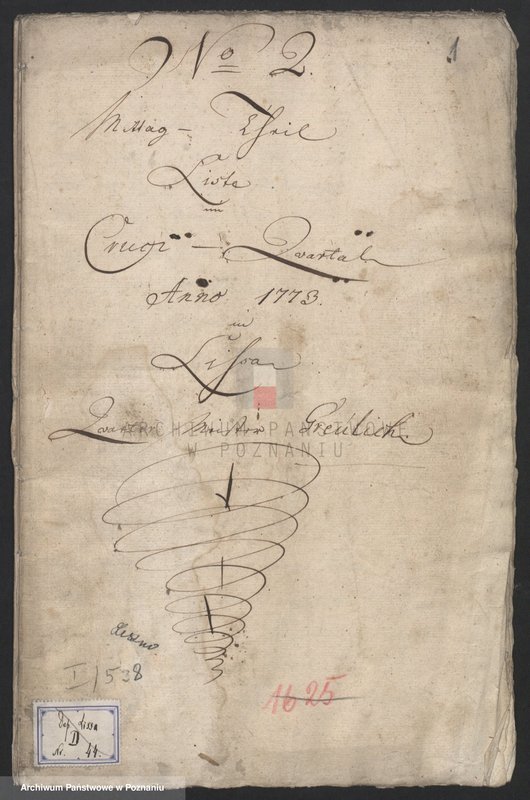 1
No 2.
Liste
im
Crucis — Quartal
Anno 1773
in
Lissa
Quartier Meister Greulich.
ARCHIWUM PAŃSTWOWE
W POZNANIU
Leszno
I/538
1625
Dep. Lissa
II
Nr. 44.
Archiwum Państwowe w Poznaniu